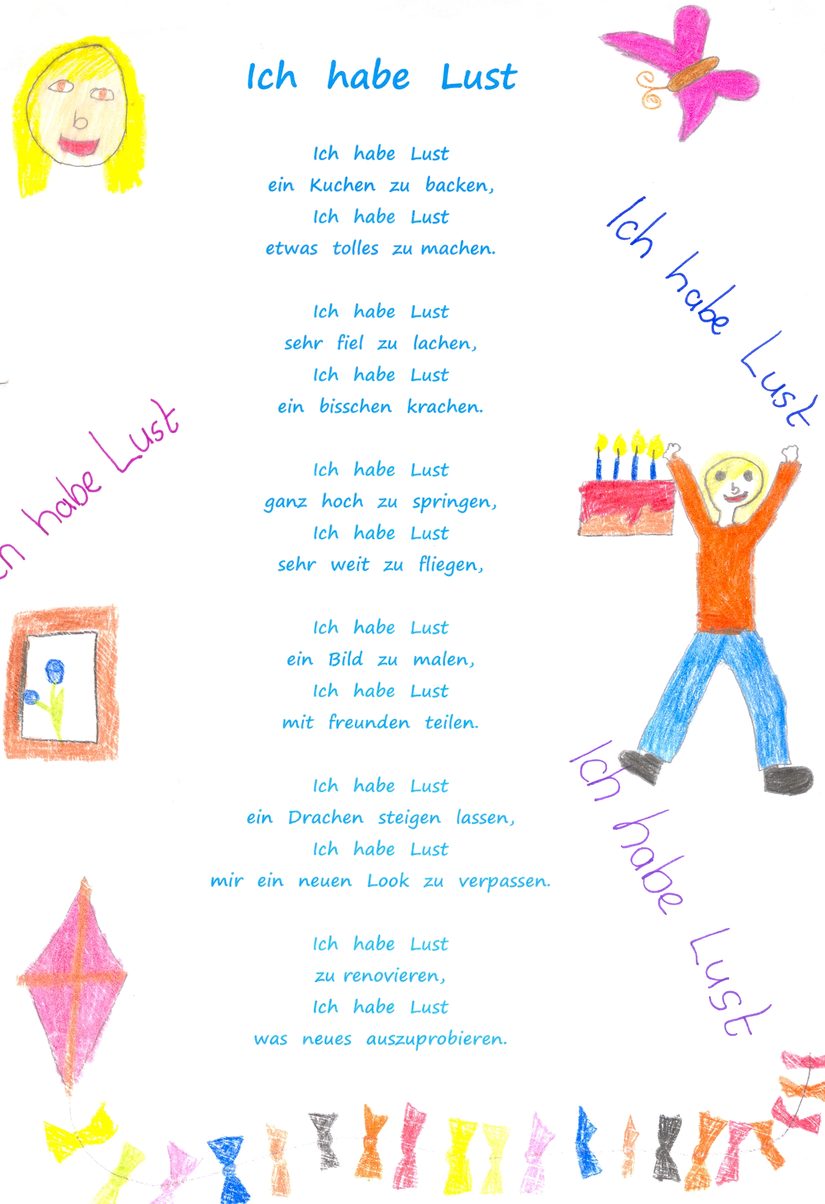 Ich habe Lust
Ich habe Lust
ein Kuchen zu backen,
Ich habe Lust
etwas tolles zu machen.
Ich habe Lust
sehr fiel zu lachen,
Ich habe Lust
ein bisschen krachen.
Ich habe Lust
ganz hoch zu springen,
Ich habe Lust
sehr weit zu fliegen,
Ich habe Lust
ein Bild zu malen,
Ich habe Lust
mit freunden teilen.
Ich habe Lust
ein Drachen steigen lassen,
Ich habe Lust
mir ein neuen Look zu verpassen.
Ich habe Lust
zu renovieren,
Ich habe Lust
was neues auszuprobieren.
Ich habe Lust
ch habe Lust
Ich habe Lust